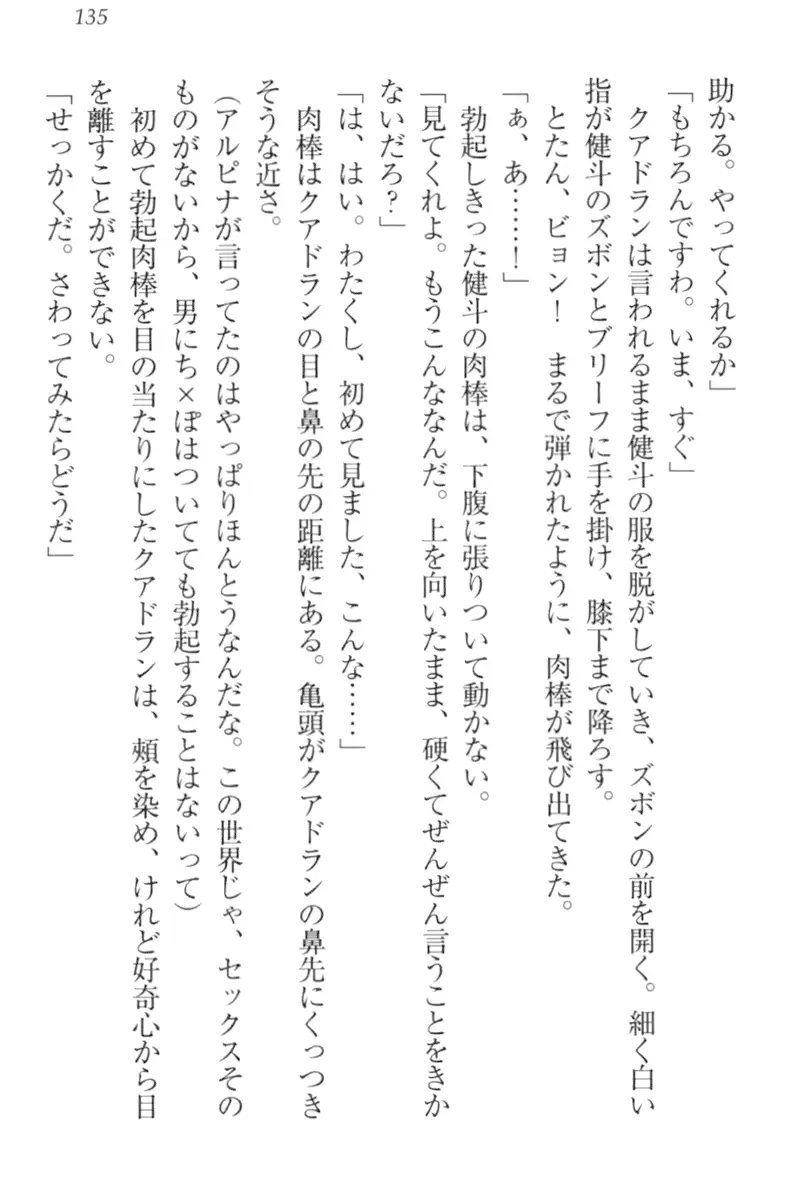 135
助かる。やってくれるか」
「もちろんですわ。いま、すぐ」
クアドランは言われるまま健斗の服を脱がしていき、ズボンの前を開く。細く白い
指が健斗のズボンとブリーフに手を掛け、膝下まで降ろす。
とたん、ビョン！　まるで弾かれたように、肉棒が飛び出てきた。
「ぁ、あ……！」
勃起しきった健斗の肉棒は、下腹に張りついて動かない。
「見てくれよ。もうこんななんだ。上を向いたまま、硬くてぜんぜん言うことをきか
ないだろ？」
「は、はい。わたくし、初めて見ました、こんな……」
肉棒はクアドランの目と鼻の先の距離にある。亀頭がクアドランの鼻先にくっつき
そうな近さ。
（アルピナが言ってたのはやっぱりほんとうなんだな。この世界じゃ、セックスその
ものがないから、男にち×ぽはついてても勃起することはないって）
初めて勃起肉棒を目の当たりにしたクアドランは、頰を染め、けれど好奇心から目
を離すことができない。
「せっかくだ。さわってみたらどうだ」